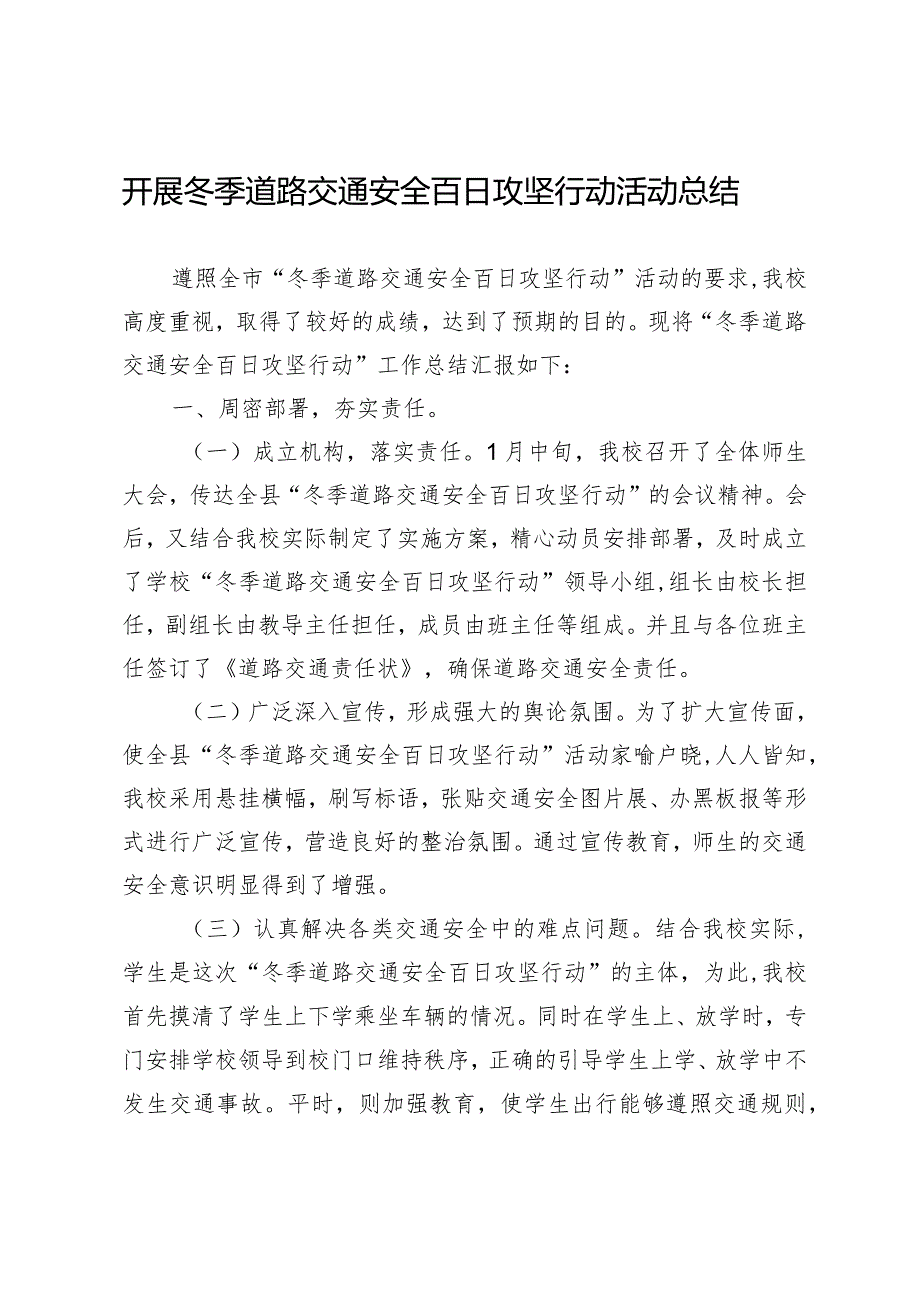 开展冬季道路交通安全百日攻坚行动活动总结
遵照全市“冬季道路交通安全百日攻坚行动”活动的要求,我校
高度重视，取得了较好的成绩，达到了预期的目的。现将“冬季道路
交通安全百日攻坚行动”工作总结汇报如下：
一、周密部署，夯实责任。
（一）成立机构，落实责任。1月中旬，我校召开了全体师生
大会，传达全县“冬季道路交通安全百日攻坚行动”的会议精神。会
后，又结合我校实际制定了实施方案，精心动员安排部署，及时成立
了学校“冬季道路交通安全百日攻坚行动”领导小组,组长由校长担
任，副组长由教导主任担任，成员由班主任等组成。并且与各位班主
任签订了《道路交通责任状》，确保道路交通安全责任。
（二）广泛深入宣传，形成强大的舆论氛围。为了扩大宣传面，
使全县“冬季道路交通安全百日攻坚行动”活动家喻户晓,人人皆知，
我校采用悬挂横幅，刷写标语，张贴交通安全图片展、办黑板报等形
式进行广泛宣传，营造良好的整治氛围。通过宣传教育，师生的交通
安全意识明显得到了增强。
（三）认真解决各类交通安全中的难点问题。结合我校实际，
学生是这次“冬季道路交通安全百日攻坚行动”的主体，为此,我校
首先摸清了学生上下学乘坐车辆的情况。同时在学生上、放学时，专
门安排学校领导到校门口维持秩序，正确的引导学生上学、放学中不
发生交通事故。平时，则加强教育，使学生出行能够遵照交通规则，